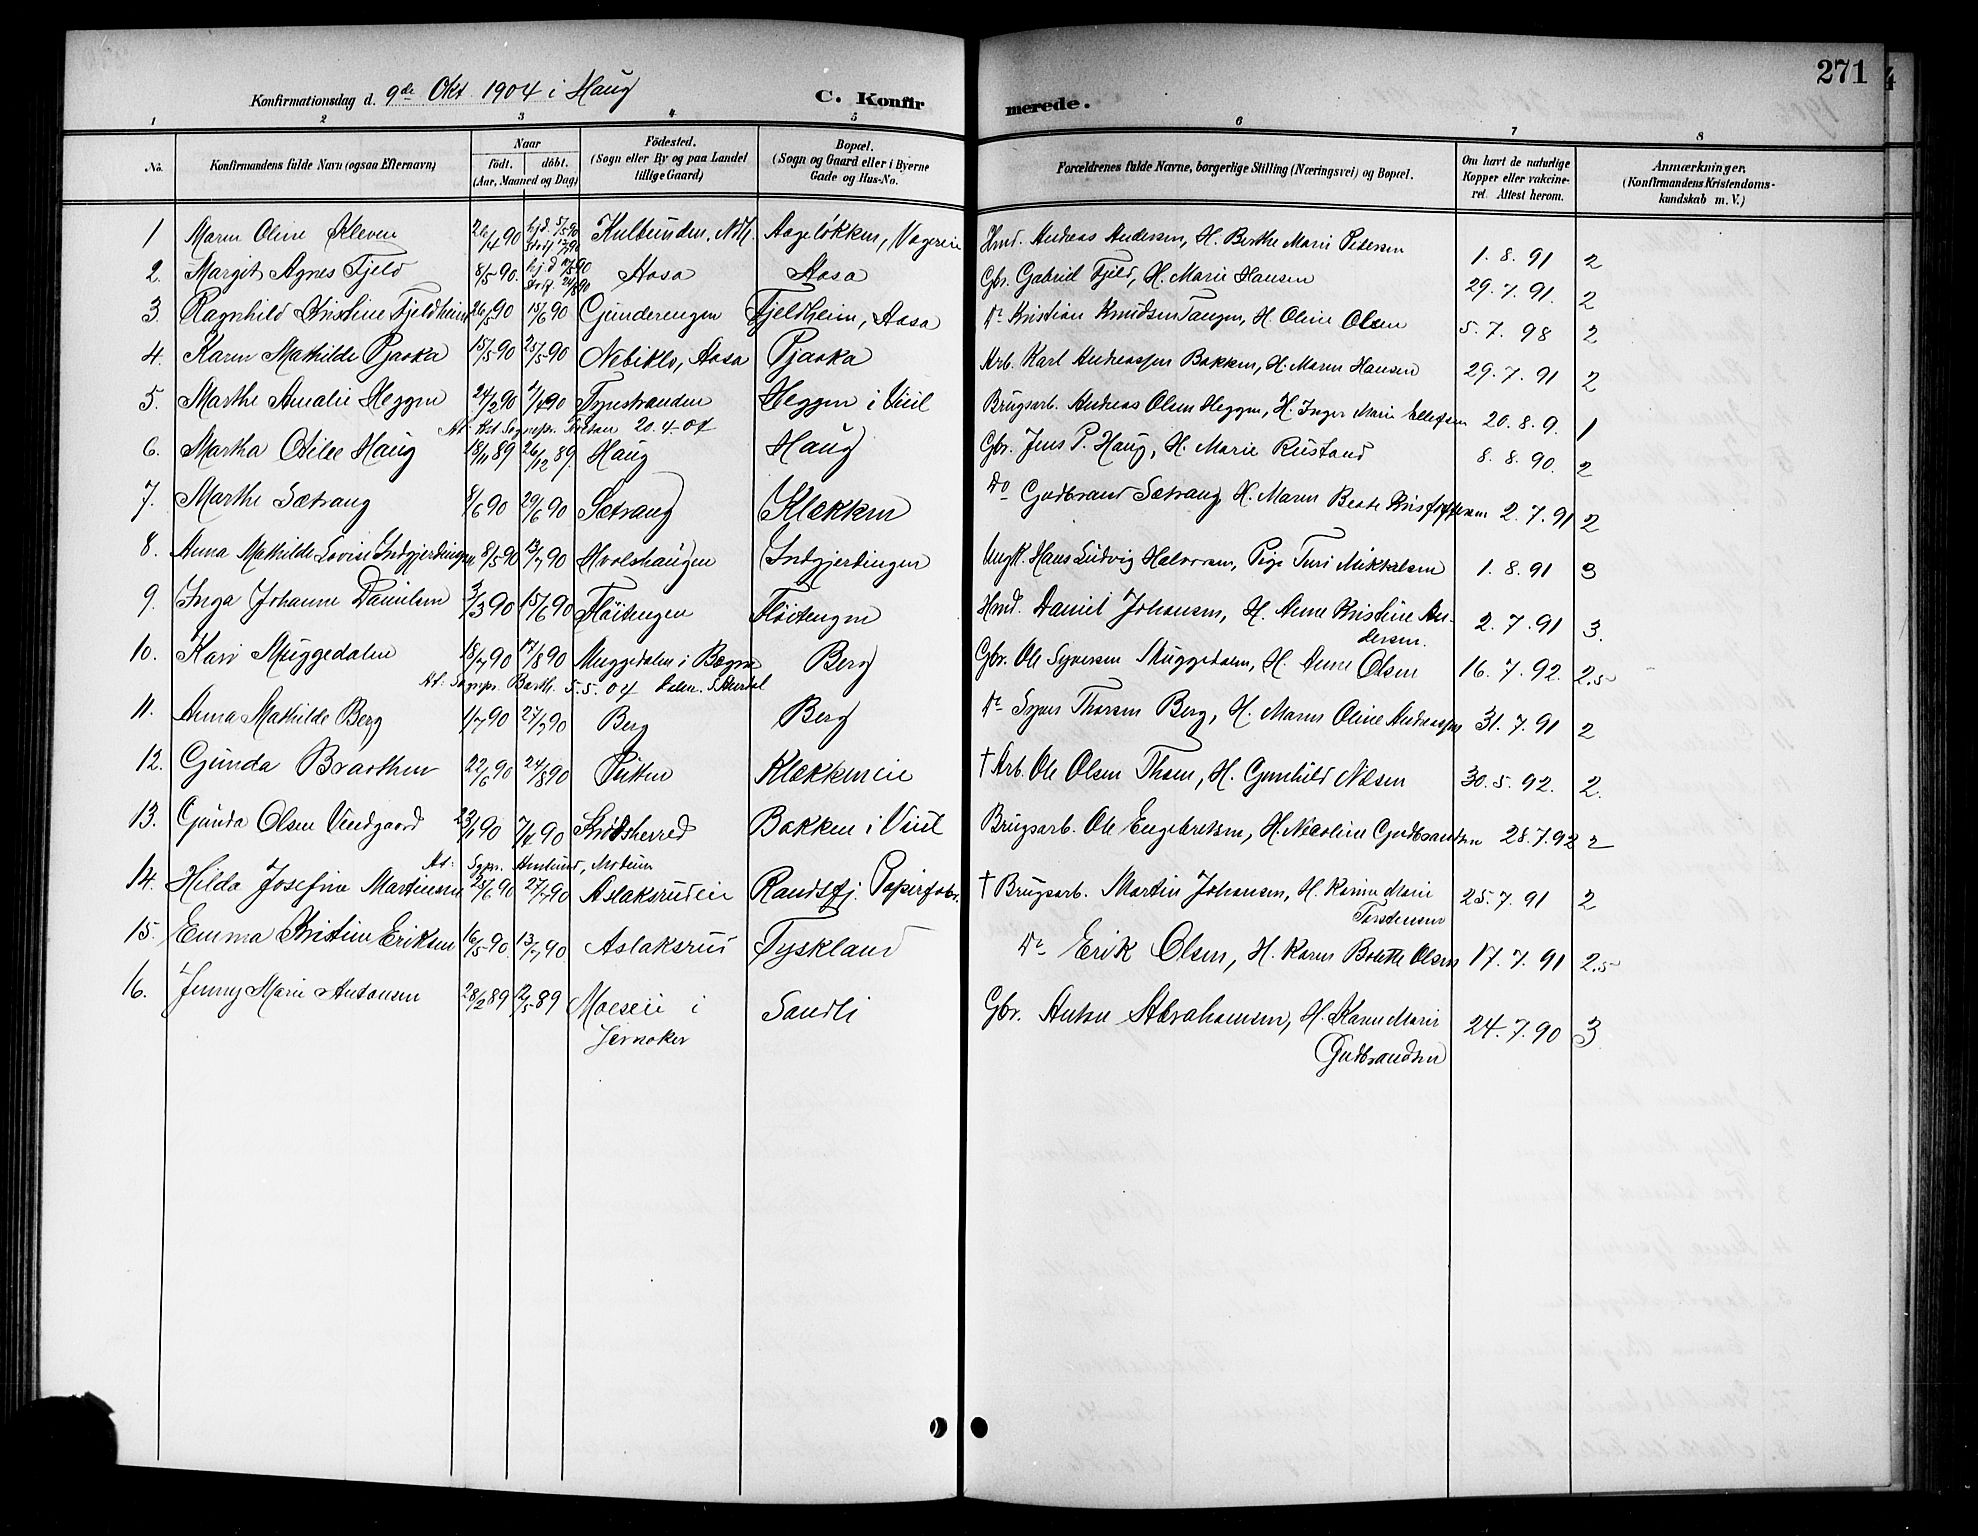 271
Konfirmationsdag d. 9de Okt 1904 i Haug C. Konfir merede.
1 2 3 4 5 6 7 8
No. Konfirmandens fulde Navn (ogsaa Efternavn) Naar födt. döbt. (Aar, Maaned og Dag) Födested. (Sogn eller By og paa Landet tillige Gaard) Bopæl. (Sogn og Gaard eller i Byerne Gade og Hus-No. Forældrenes fulde Navne, borgerlige Stilling (Næringsvei) og Bopæl. Om havt de naturlige Kopper eller vakcineret. Attest herom. Anmærkninger. (Konfirmandens Kristendomskundskab m. V.)
1 Maren Oline Kleven 26/4 90 hj.d. 5/5 90 Hmd. Andreas Andersen, H. Berthe Marie Pedersen 1.8.91 2
2. Margit Agnes Fjeld 8/5 90. Aasa Aasa Gbr. Gabriel Fjeld, H. Marie Hansen 29.7.91. 2
3. Ragnhild Kristine Fjeldheim 26/5 90 15/6 90 Gunderengen Fjeldheim, Aasa Do Kristian Knudsen Tangen, H. Oline Olsen 5.7.98 2
4. Karen Mathilde Pjaaka 15/5 90 25/5 90 Nebiklo, Aasa Pjaaka Arb. Karl Andreassen Bakken, H. Maren Hansen 29.7.91 2
5. Marthe Amalie Heggen 24/2 90 7/4 90 Fynstranden Heggen i Viul Brugsarb. Andreas Olsen Heggen, H. Inger Marie Ellefsen 20.8.9. 1
At. 20.4-04
6. Martha Otilie Haug 18/11 89 26/12 89. Haug Haug Gbr. Jens P. Haug, H. Marie Rustand 8.8.90. 2
7. Marthe Sætrang 8/6 90 29/6 90 Sætrang Klækken Do Gudbrand Sætrang H. Maren Beate Kristoffersen 2.7.91 2
8. Anna Mathilde Lovise Indgjerdingen 8/5 90 13/7 90 Hvolshaugen Indgjerdingen Ungk. Hans Ludvig Halvorsen, Pige Turi Mikkelsen 1.8.91 3
9. Inga Johanne Danielsen 3/3 90 15/6 90 Flöitengen Flöitengen Hmd. Daniel Johansen, H. Anne Kristine An-
dersen. 2.7.91 3.
10. Kari Muggedalen 18/7 90 17/8 90 Muggedalen i Bægna Berg Gbr. Ole Syversen Muggedalen, H. Anne Olsen 16.7.92. 2.5
At: Sognepr. Barth. 5.5.04 dalen. S. Aurdal
11. Anna Mathilde Berg 1/7 90 27/7 90 Berg Berg Do Syver Thorsen Berg, H. Maren Oline Andreassen 31.7.91 2
12. Gunda Braathen 22/6 90 24/8 90 Putten Klækkeneie † Arb. Ole Olsen Thoen, H. Gunhild Nilsen 30.5.92. 2.
13. Gunda Olsen Vendgaard 23/1 90 7/4 90 Snödsherred Bakken i Viul Brugsarb. Ole Engebretsen, H. Nicoline Gudbrandsen 28.7.92 2
At: Sgpr. Amlund, Modum
14. Hilda Josefine Martinsen 25/6 90 27/7 90 Aslaksrudeie Randsfj. Papirfabr. † Brugsarb. Martin Johansen, H. Karine Marie
Torstensen 25.7.91 2
15. Emma Kristine Eriksen 16/5 90. 13/7 90 Aslaksrud Tyskland Do Erik Olsen, H. Karen Bolette Olsen 17.7.91 2.5
16. Jenny Marie Antonsen 28/2 89 12/5 89 Moeseie i
Jevnaker Sandli Gbr. Anton Abrahamsen, H. Karen Marie
Gudbrandsen 24.7.90 3